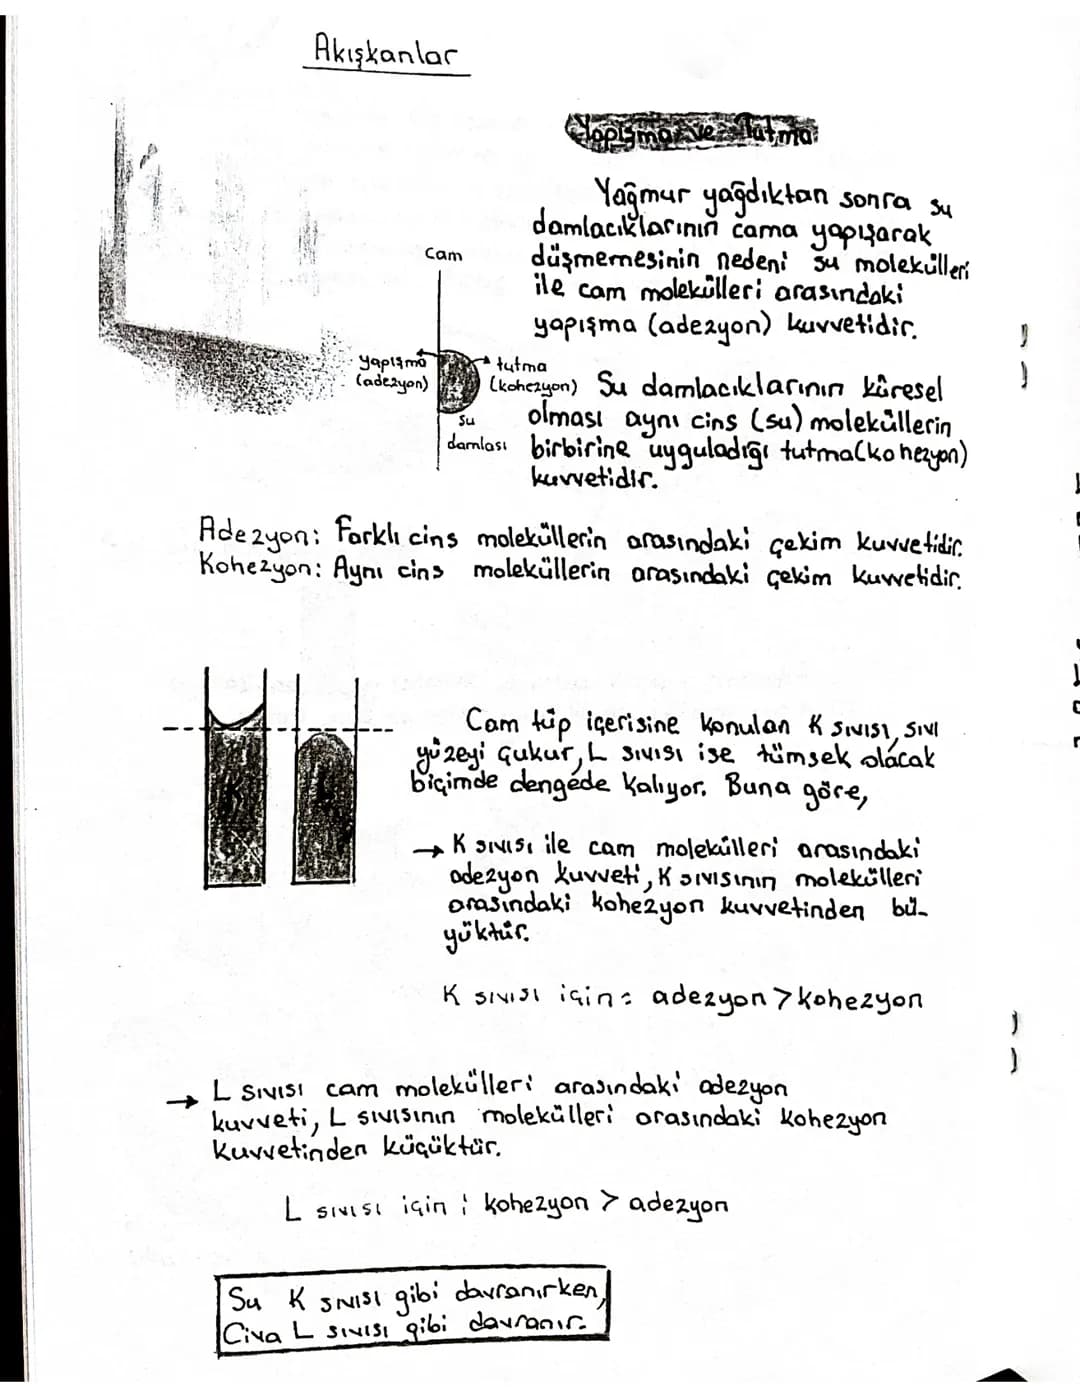 Akışkanlar
Yapışma ve Tutma
Yağmur yağdıktan sonra su
damlacıklarının cama yapışarak
düşmemesinin nedeni su molekülleri
ile cam molekülleri arasındaki
yapışma (adezyon) kuvvetidir.
cam
yapışma
(adezyon)
tutma
(kohezyon)
su
damlası
Su damlacıklarının küresel
olması aynı cins (su) moleküllerin
birbirine uyguladığı tutma(kohezyon)
kuvvetidir.
Adezyon: Farklı cins moleküllerin arasındaki çekim kuvvetidir.
Kohezyon: Aynı cins moleküllerin arasındaki çekim kuvvetidir.
K
L
Cam tüp içerisine konulan K sıvısı, sıvı
yüzeyi çukur, L sıvısı ise tümsek olacak
biçimde dengede kalıyor. Buna göre,
→ K sıvısı ile cam molekülleri arasındaki
adezyon kuvveti, K sıvısının molekülleri
arasındaki kohezyon kuvvetinden bü-
yüktür.
K sıvısı için: adezyon > kohezyon
→ L sıvısı cam molekülleri arasındaki adezyon
kuvveti, L sıvısının molekülleri arasındaki kohezyon
kuvvetinden küçüktür.
L sıvısı için : kohezyon > adezyon
Su K sıvısı gibi davranırken,
Civa L sıvısı gibi davranır.